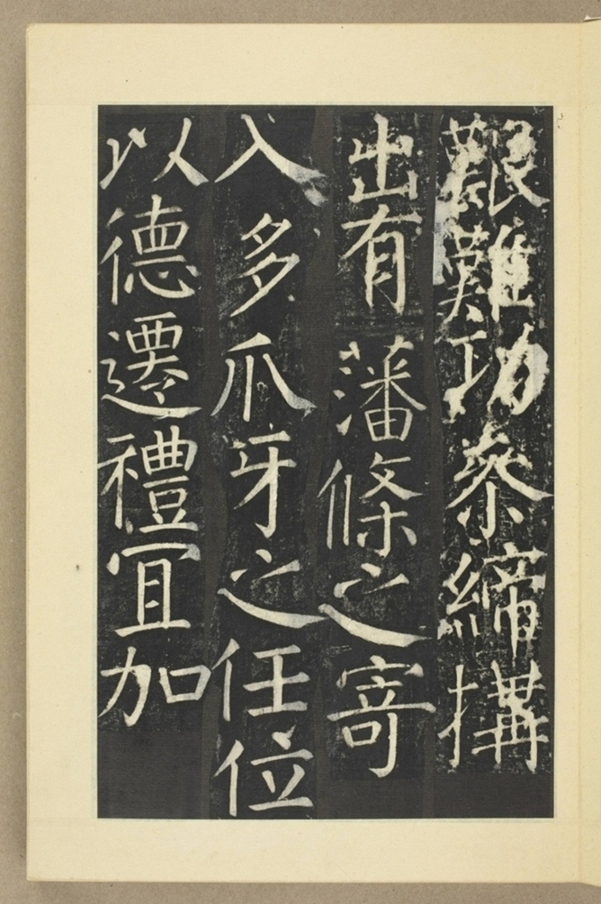 艱難功叅締搆
出有藩條之寄
入多爪牙之任位
以德遷禮冝加